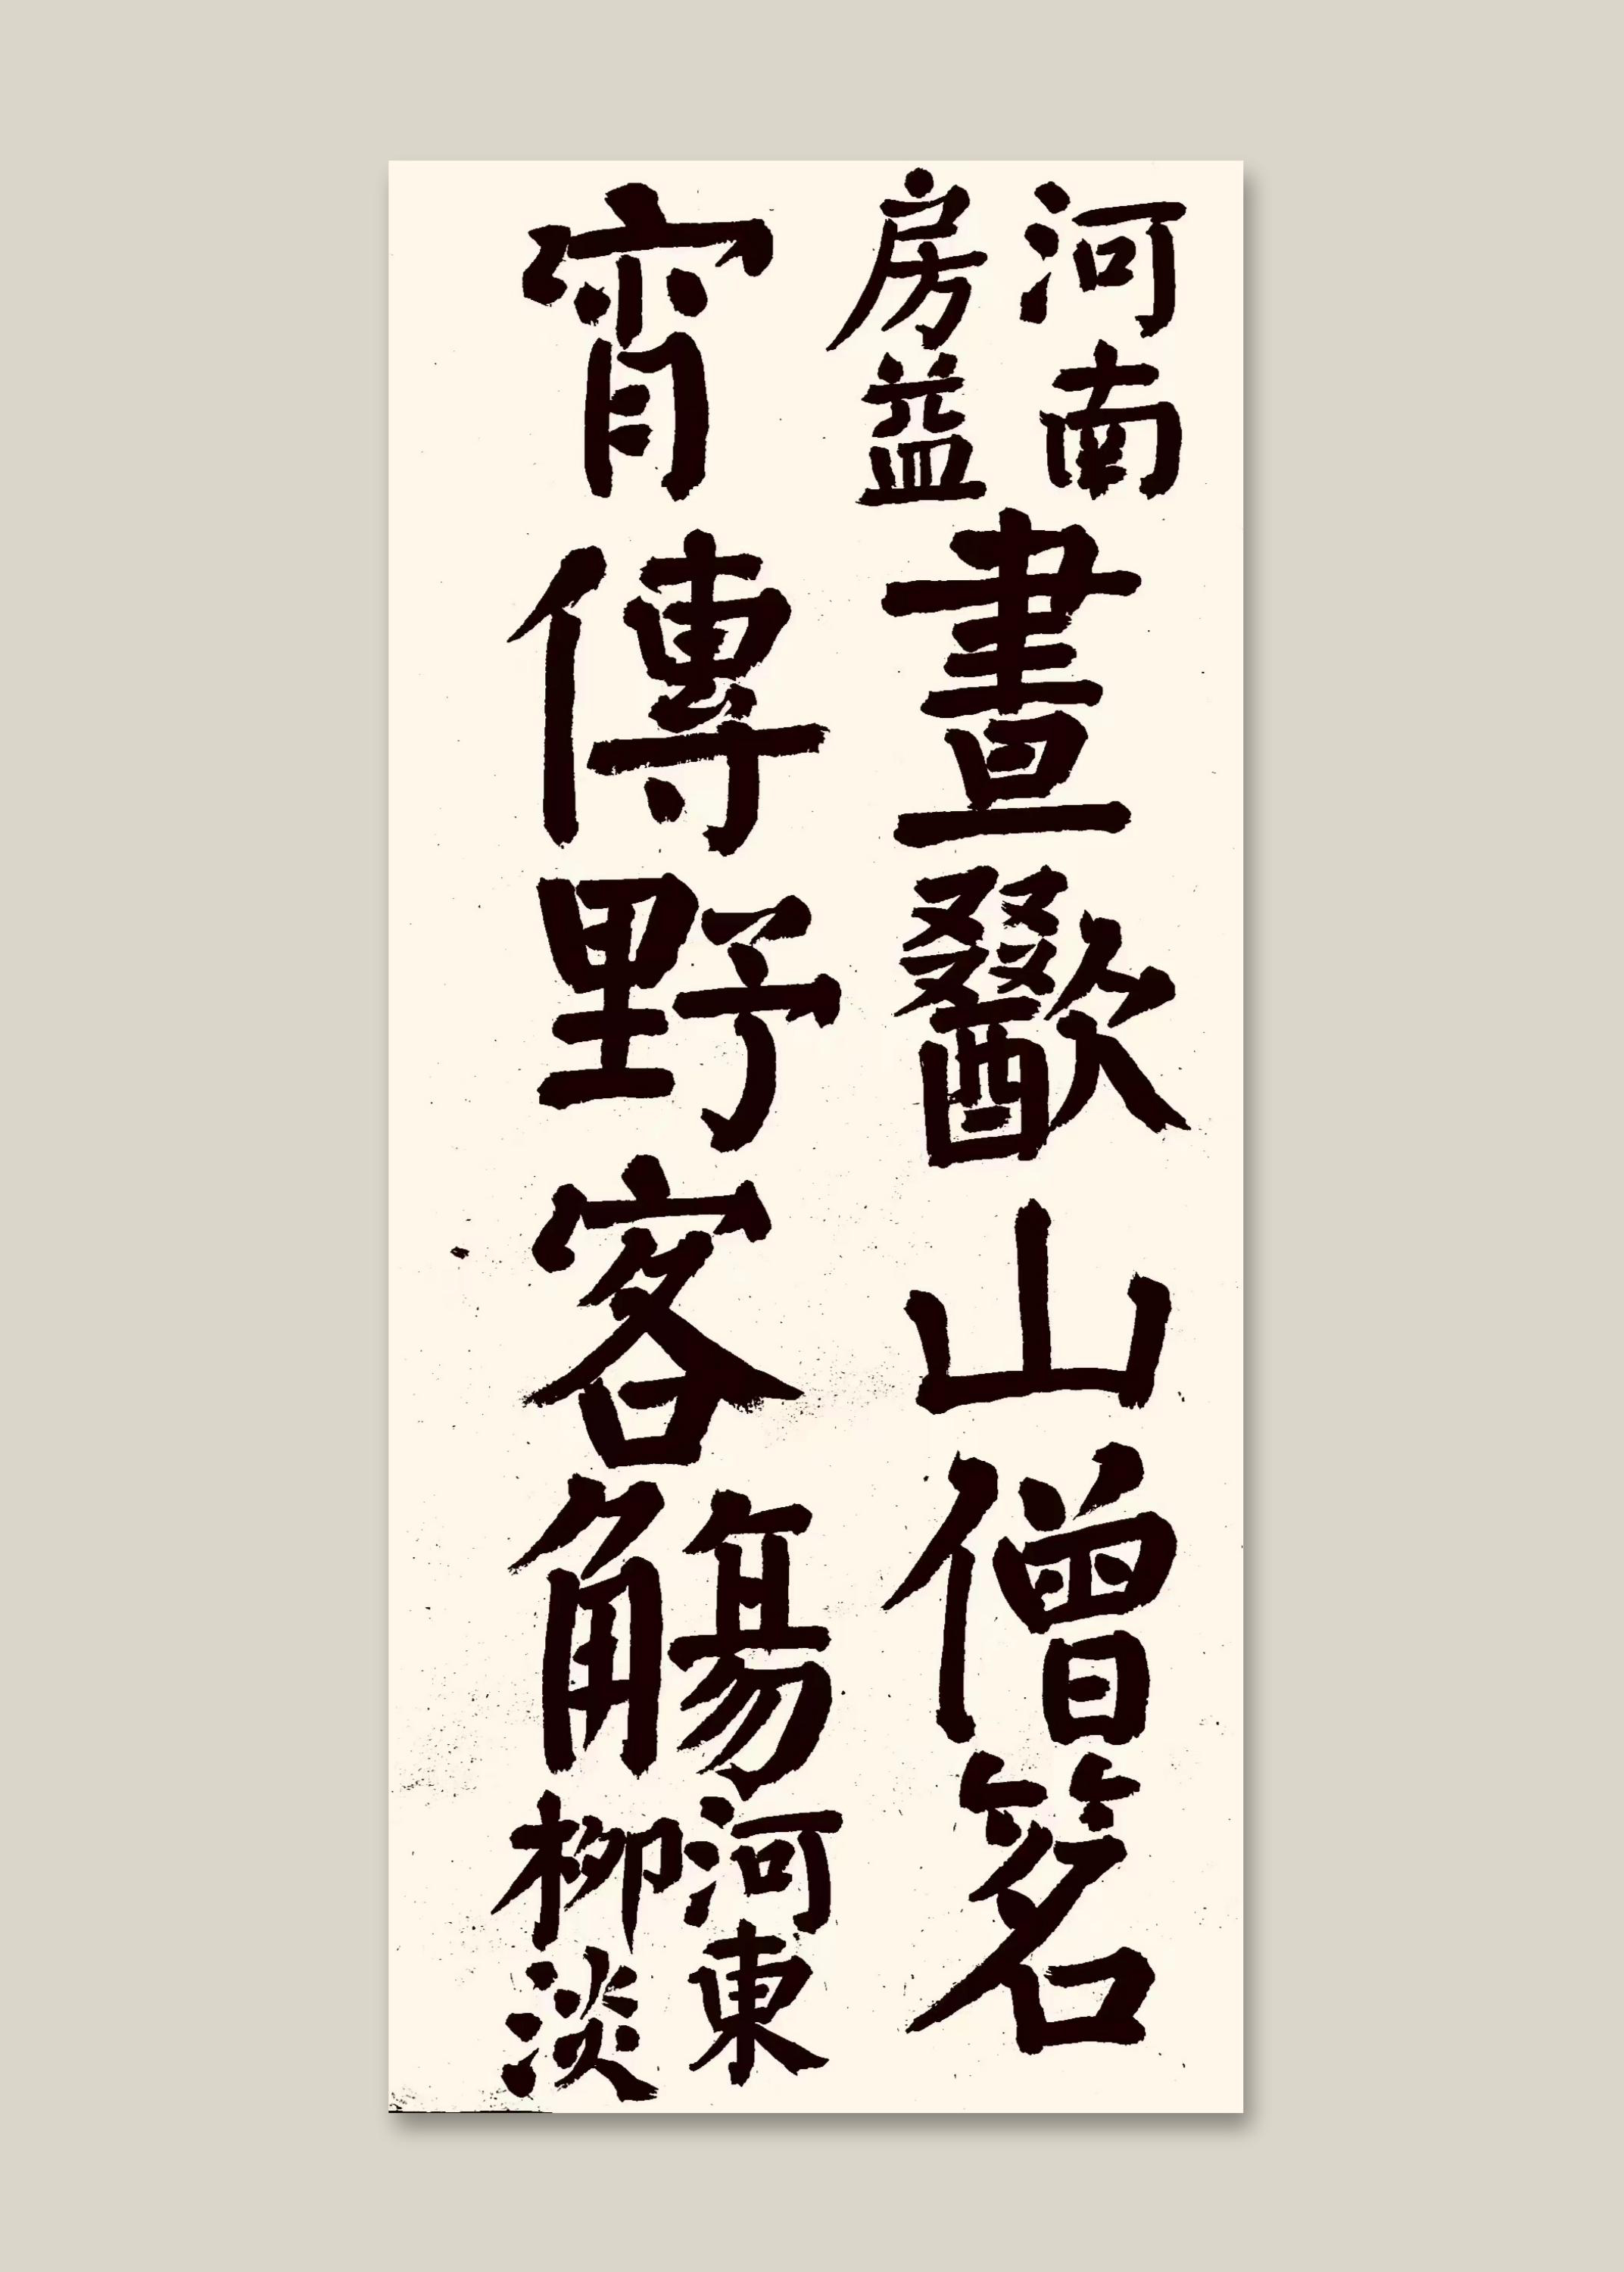 河南房益晝歠山僧茗
宵傳野客觴河東柳淡